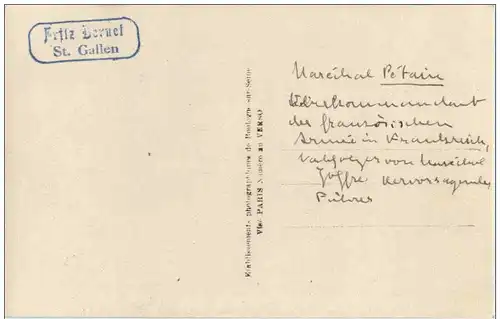 Fritz Bernet
St. Gallen
Etablissements photographiques de Boulogne-sur-Seine
Visé PARIS Numéro au VERSO
Maréchal Pétain
des französischen
Armée in Frankreich,
von Maréchal
Joffre hervorragender
Führer